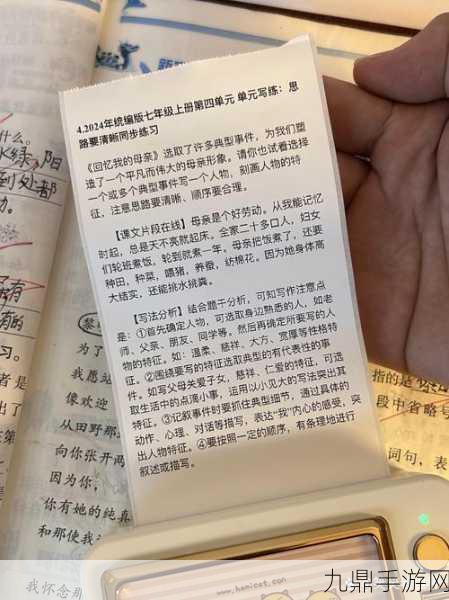 4.2024年统编版七年级上册第四单元 单元写练：思
路要清晰同步练习
《回忆我的母亲》选取了许多典型事件，为我们塑
造了一个平凡而伟大的母亲形象。请你也试着选择
一个或多个典型事件写一个人物，刻画人物的特
征，注意思路要清晰、顺序要合理。
【课文片段在线】母亲是个好劳动。从我能记忆
时起，总是天不亮就起床。全家二十多口人，妇女
们轮班煮饭，轮到就煮一年。母亲把饭煮了，还要
种田，种菜，喂猪，养蚕，纺棉花。因为她身体高
大结实，还能挑水挑粪。
【写法分析】结合题干分析，可知写作注意点
是：①首先确定人物，可选取身边熟悉的人，如老
师、父亲、朋友、同学等。然后再确定所要写的人
物的特征。如：温柔、慈祥、大方、宽厚等性格特
征。②围绕要写的特征选取典型的有代表性的事
件。如写父母关爱子女，慈祥、仁爱的特征，可选
取生活中的点滴小事，运用以小见大的写法突出其
特征。③记叙事件时要抓住典型细节，通过具体的
动作、心理、对话等描写，表达“我”内心的感受，突
出人物特征。④要按照一定的顺序，有条理地进行
叙述或描写。
什么。
水绿，阳
到处都
习。
者是
为了
我愿
像欢迎
从田野那
向你张开两
因为你，
你有她的纯真
和那使我
我怀念那
指的是
段中省略号
词句，表
www.hamicat.com
九鼎手游网